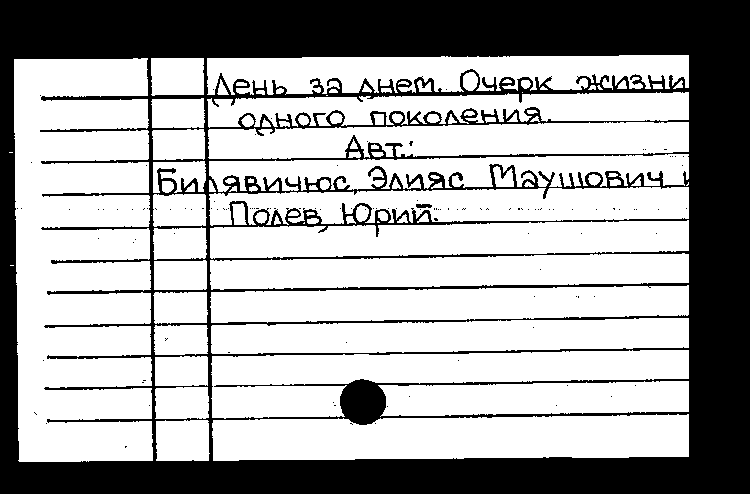 День за днем. Очерк жизни
одного поколения.
Авт.:
Билявичюс, Элияс Маушович и
Полев, Юрий.